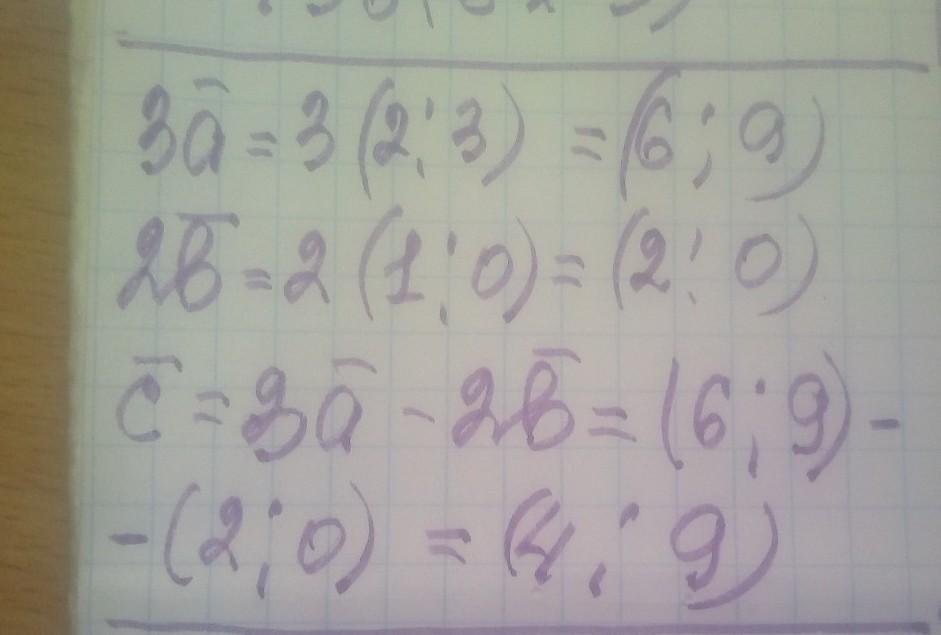 3a̅ = 3 (2; 3) = (6; 9)
2b̅ = 2 (1; 0) = (2; 0)
c̅ = 3a̅ - 2b̅ = (6; 9) -
- (2; 0) = (4; 9)